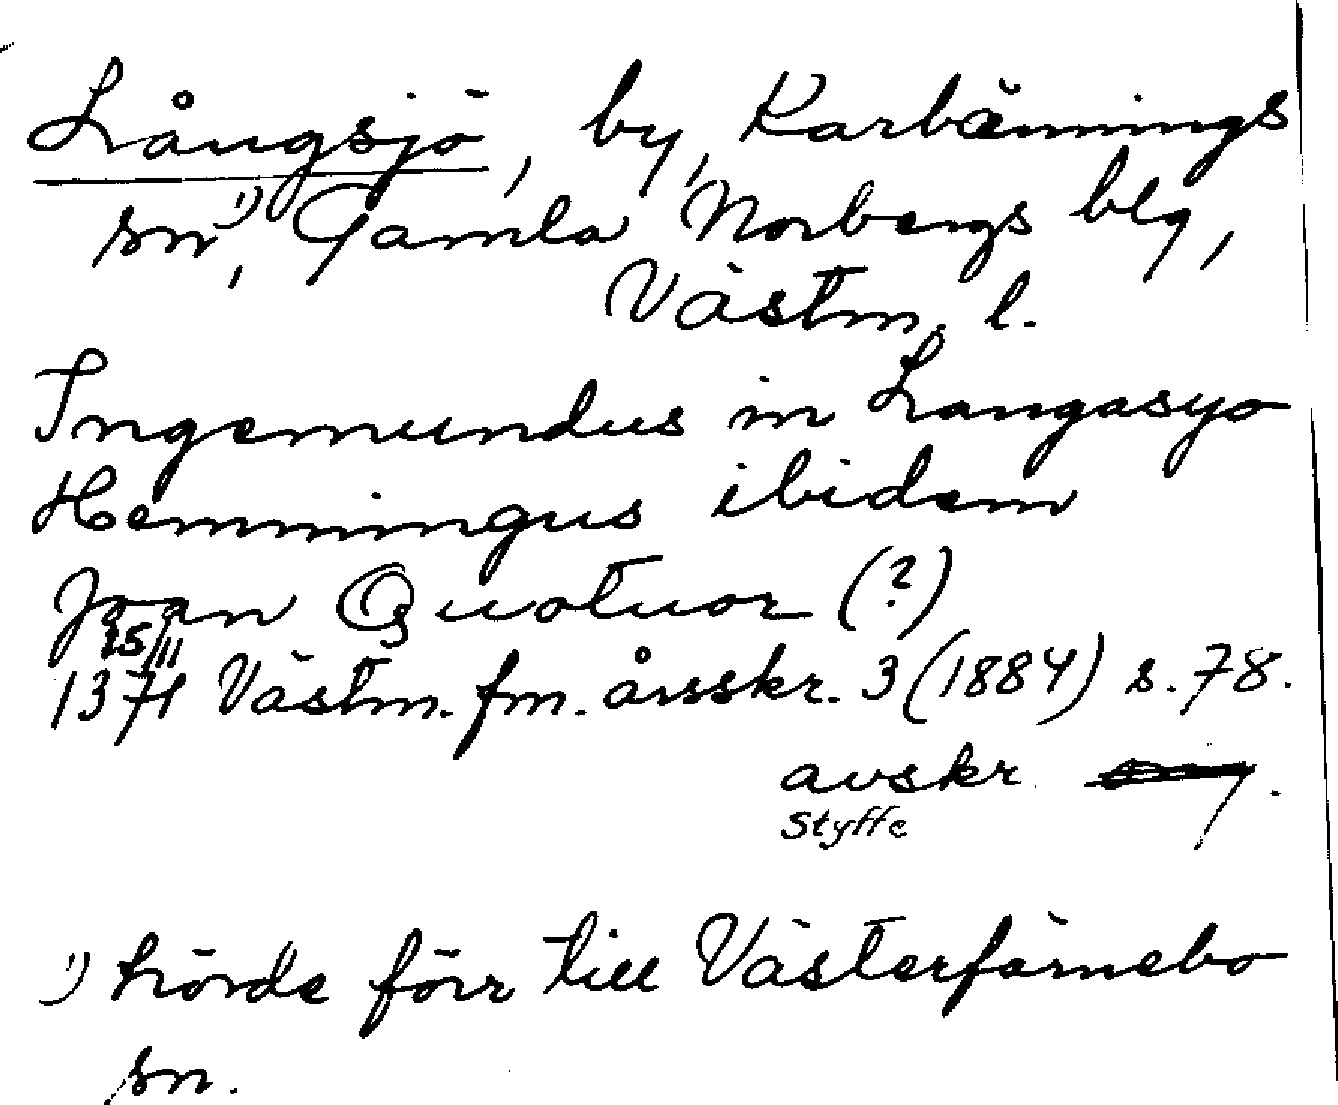 Långsjö, by, Karbennings
sn¹⁾, Gamla Norbergs blg,
Västm. l.
Ingemundus in Langasyo
Hemmingus ibidem
Joan Quotuor (?)
15/11
1371 Västm. fm. årsskr. 3 (1884) s. 78.
avskr.
Styffe
¹⁾ hörde förr till Västerfärnebo
sn.